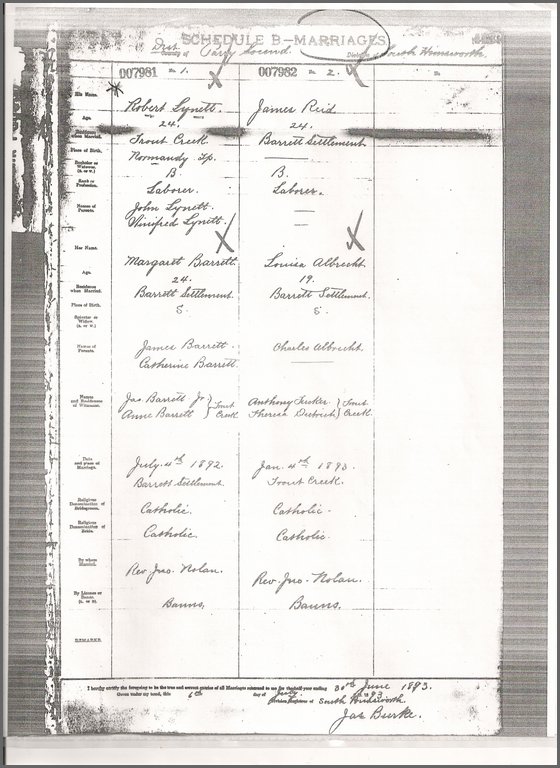 SCHEDULE B—MARRIAGES
Dist. County of Parry Sound Division of South Himsworth
007981 No. 1. 007982 No. 2. No.
His Name. Robert Lynett. James Reid
Age. 24. 24.
Residence when Married. Trout Creek. Barrett Settlement.
Place of Birth. Normandy Tp.
Bachelor or Widower (B. or W.) B. B.
Rank or Profession. Laborer. Laborer.
Names of Parents. John Lynett.
Winifred Lynett.
Her Name. Margaret Barrett. Louisa Albrecht
Age. 24. 19.
Residence when Married. Barrett Settlement. Barrett Settlement.
Place of Birth.
Spinster or Widow. (S. or W.) S. S.
Names of Parents. James Barrett. Charles Albrecht.
Catherine Barrett.
Names and Residences of Witnesses. Jas. Barrett Jr. Anne Barrett } Trout Creek Anthony Tucker. Theresa Dietrich } Trout Creek.
Date and place of Marriage. July 4th 1892. Jan. 4th 1893.
Barrett Settlement Trout Creek.
Religious Denomination of Bridegroom. Catholic. Catholic.
Religious Denomination of Bride. Catholic. Catholic.
By whom Married. Rev. Jno. Nolan. Rev. Jno. Nolan.
By License or Banns. (L. or B.) Banns. Banns.
REMARKS.
I hereby certify the foregoing to be the true and correct entries of all Marriages returned to me for the half-year ending 30th June 1893.
Given under my hand, this 6th day of July 1893
Division Registrar of South Himsworth.
Jas Burke.